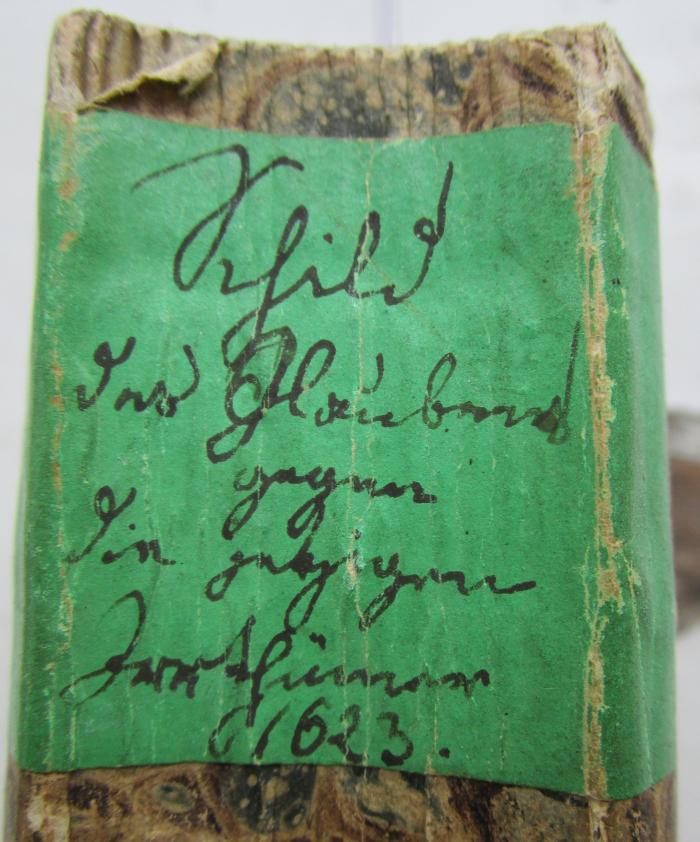 Schild
des Glaubens
gegen
die jetzigen
Irrthümer
1623.